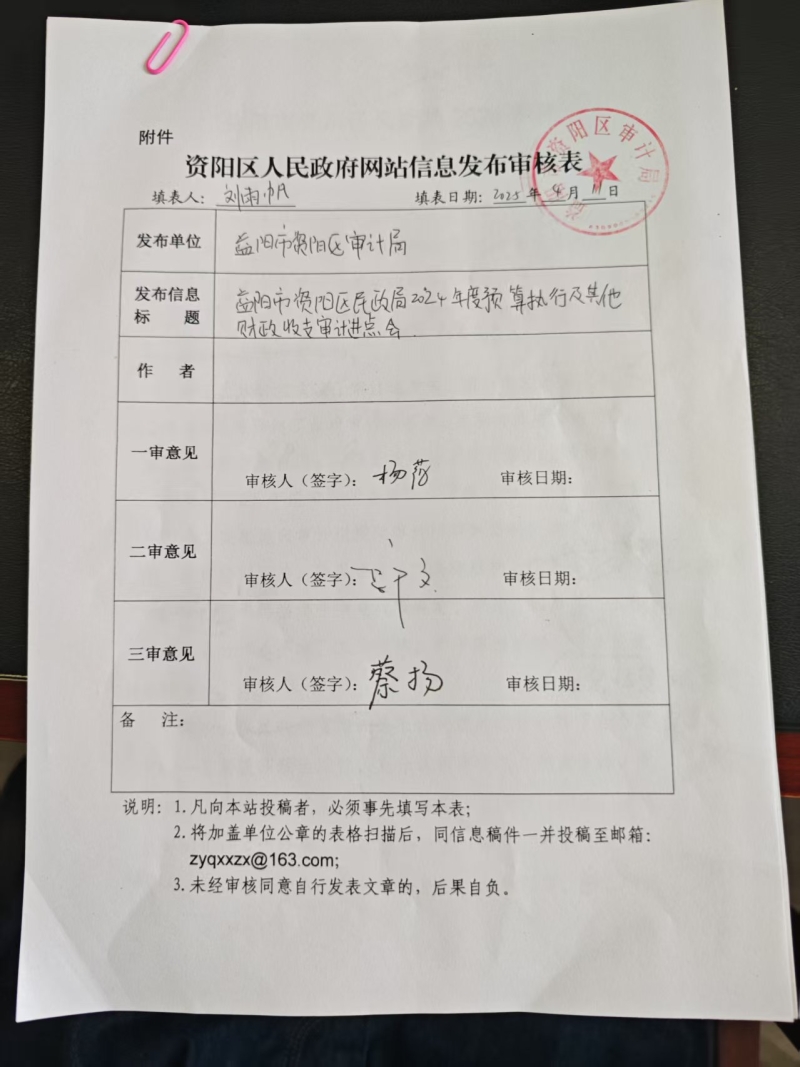 附件
资阳区人民政府网站信息发布审核表
填表人：刘雨帆 填表日期：2025年4月11日
资阳区审计局
发布单位 益阳市资阳区审计局
发布信息标题 益阳市资阳区民政局2024年度预算执行及其他
财政收支审计进点会
作 者
一审意见 审核人（签字）：杨莎 审核日期：
二审意见 审核人（签字）： 审核日期：
三审意见 审核人（签字）：蔡扬 审核日期：
备 注：
说明：1. 凡向本站投稿者，必须事先填写本表；
2. 将加盖单位公章的表格扫描后，同信息稿件一并投稿至邮箱：
zyqxxzx@163.com;
3. 未经审核同意自行发表文章的，后果自负。